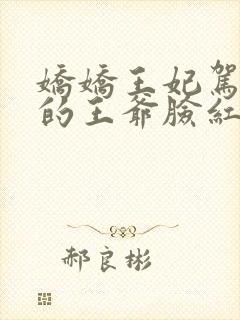 嬌嬌王妃駕
的王爺臉紅
郝良彬